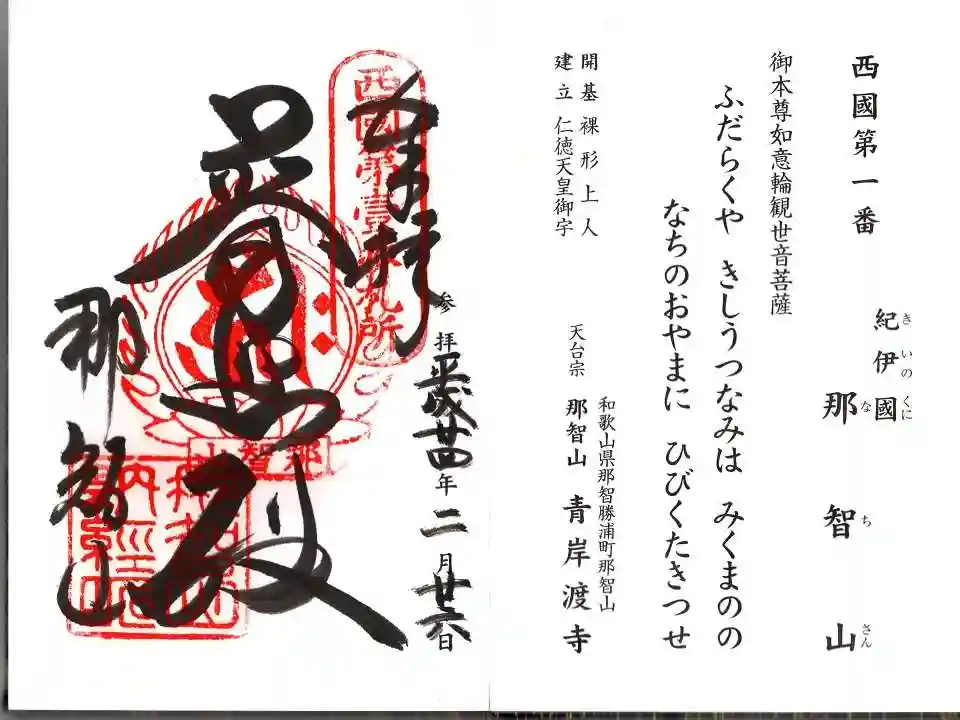 西國第一番
紀伊國
きいのくに
那智山
なちさん
御本尊如意輪観世音菩薩
ふだらくや きしうつなみは みくまのの
なちのおやまに ひびくたきつせ
開基裸形上人
建立仁徳天皇御宇
和歌山県那智勝浦町那智山
天台宗 那智山 青岸渡寺
奉拝
西國第壹番札所
参拝平成廿四年二月廿六日
普照殿
那智山
那智山